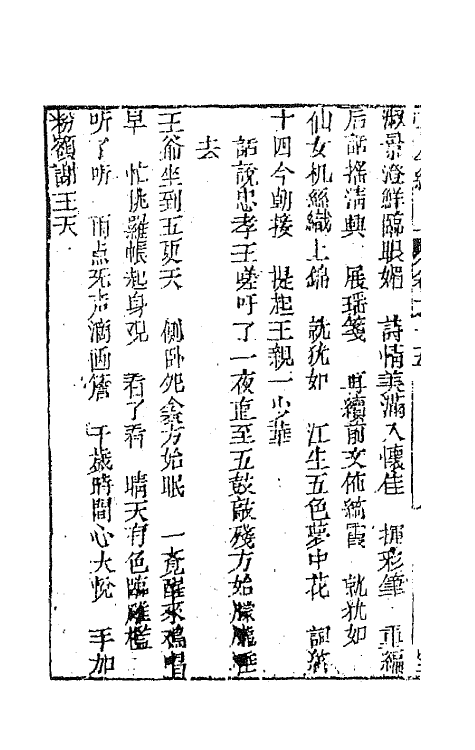 淑景澄鮮臨眼媚 詩情美滿入懷佳 揮彩筆 重編
后話搖清興 展瑤箋 再續前文佈綺霞 就猶如
仙女机絲織上錦 就犹如 江生五色夢中花 詞猶
十四今朝接 提起王親一少華
話說忠孝王嗟吁了一夜直至五鼓敲殘方始朦朧睡
去
王爺坐到五更天 側卧 方始眠 一覔醒來鳴唱
早 忙挑羅帳起身观 看了看 晴天有色臨雕檻
听了听 雨点死声滴画簷 千歲時間心大悅 手加
粉額謝王天